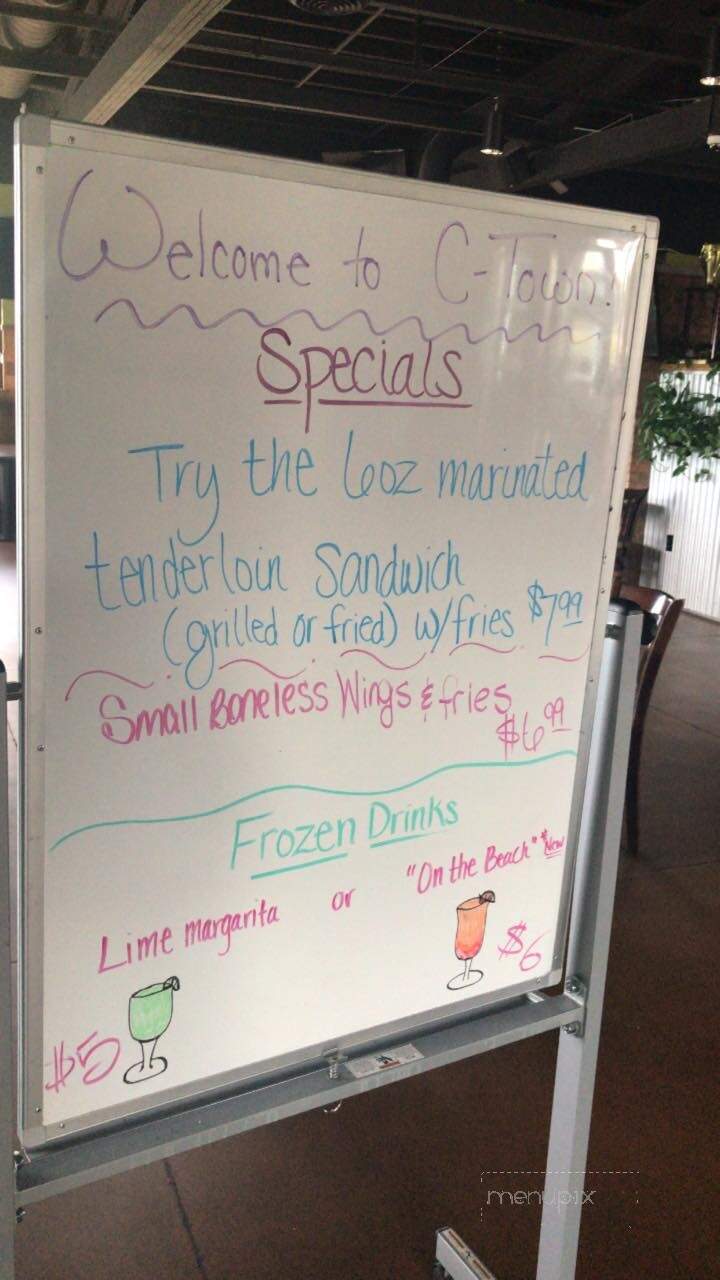 Welcome to C-Town!
Specials
Try the 6oz marinated
tenderloin Sandwich
(grilled or fried) w/fries $7.99
Small Boneless Wings & fries
$6.99
Frozen Drinks
Lime margarita or "On the Beach" *New
$5 $6
menupix